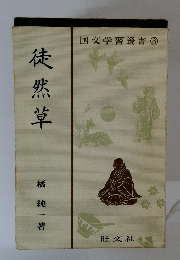 国文学習叢書③
徒然草
橘純一著
旺文社